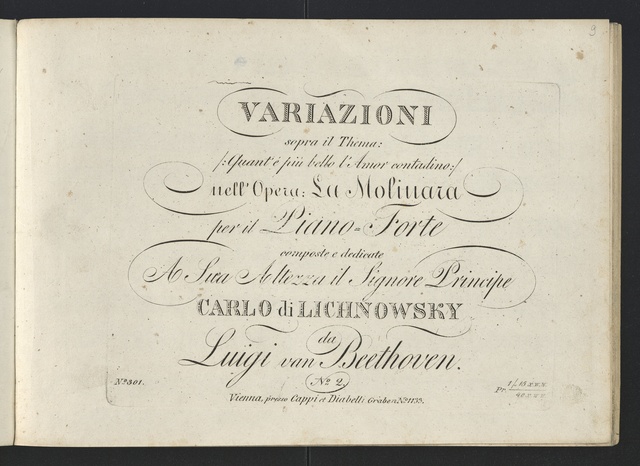 9
VARIAZIONI
sopra il Thema:
/:Quant'é più bello l'Amor contadino:/
nell'Opera: La Molinara
per il Piano=Forte
composte e dedicate
A Sua Altezza il Signore Principe
CARLO di LICHNOWSKY
da
Luigi van Beethoven.
No 2.
No 301.
Vienna, presso Cappi et Diabelli Graben No 1133.
Pr.